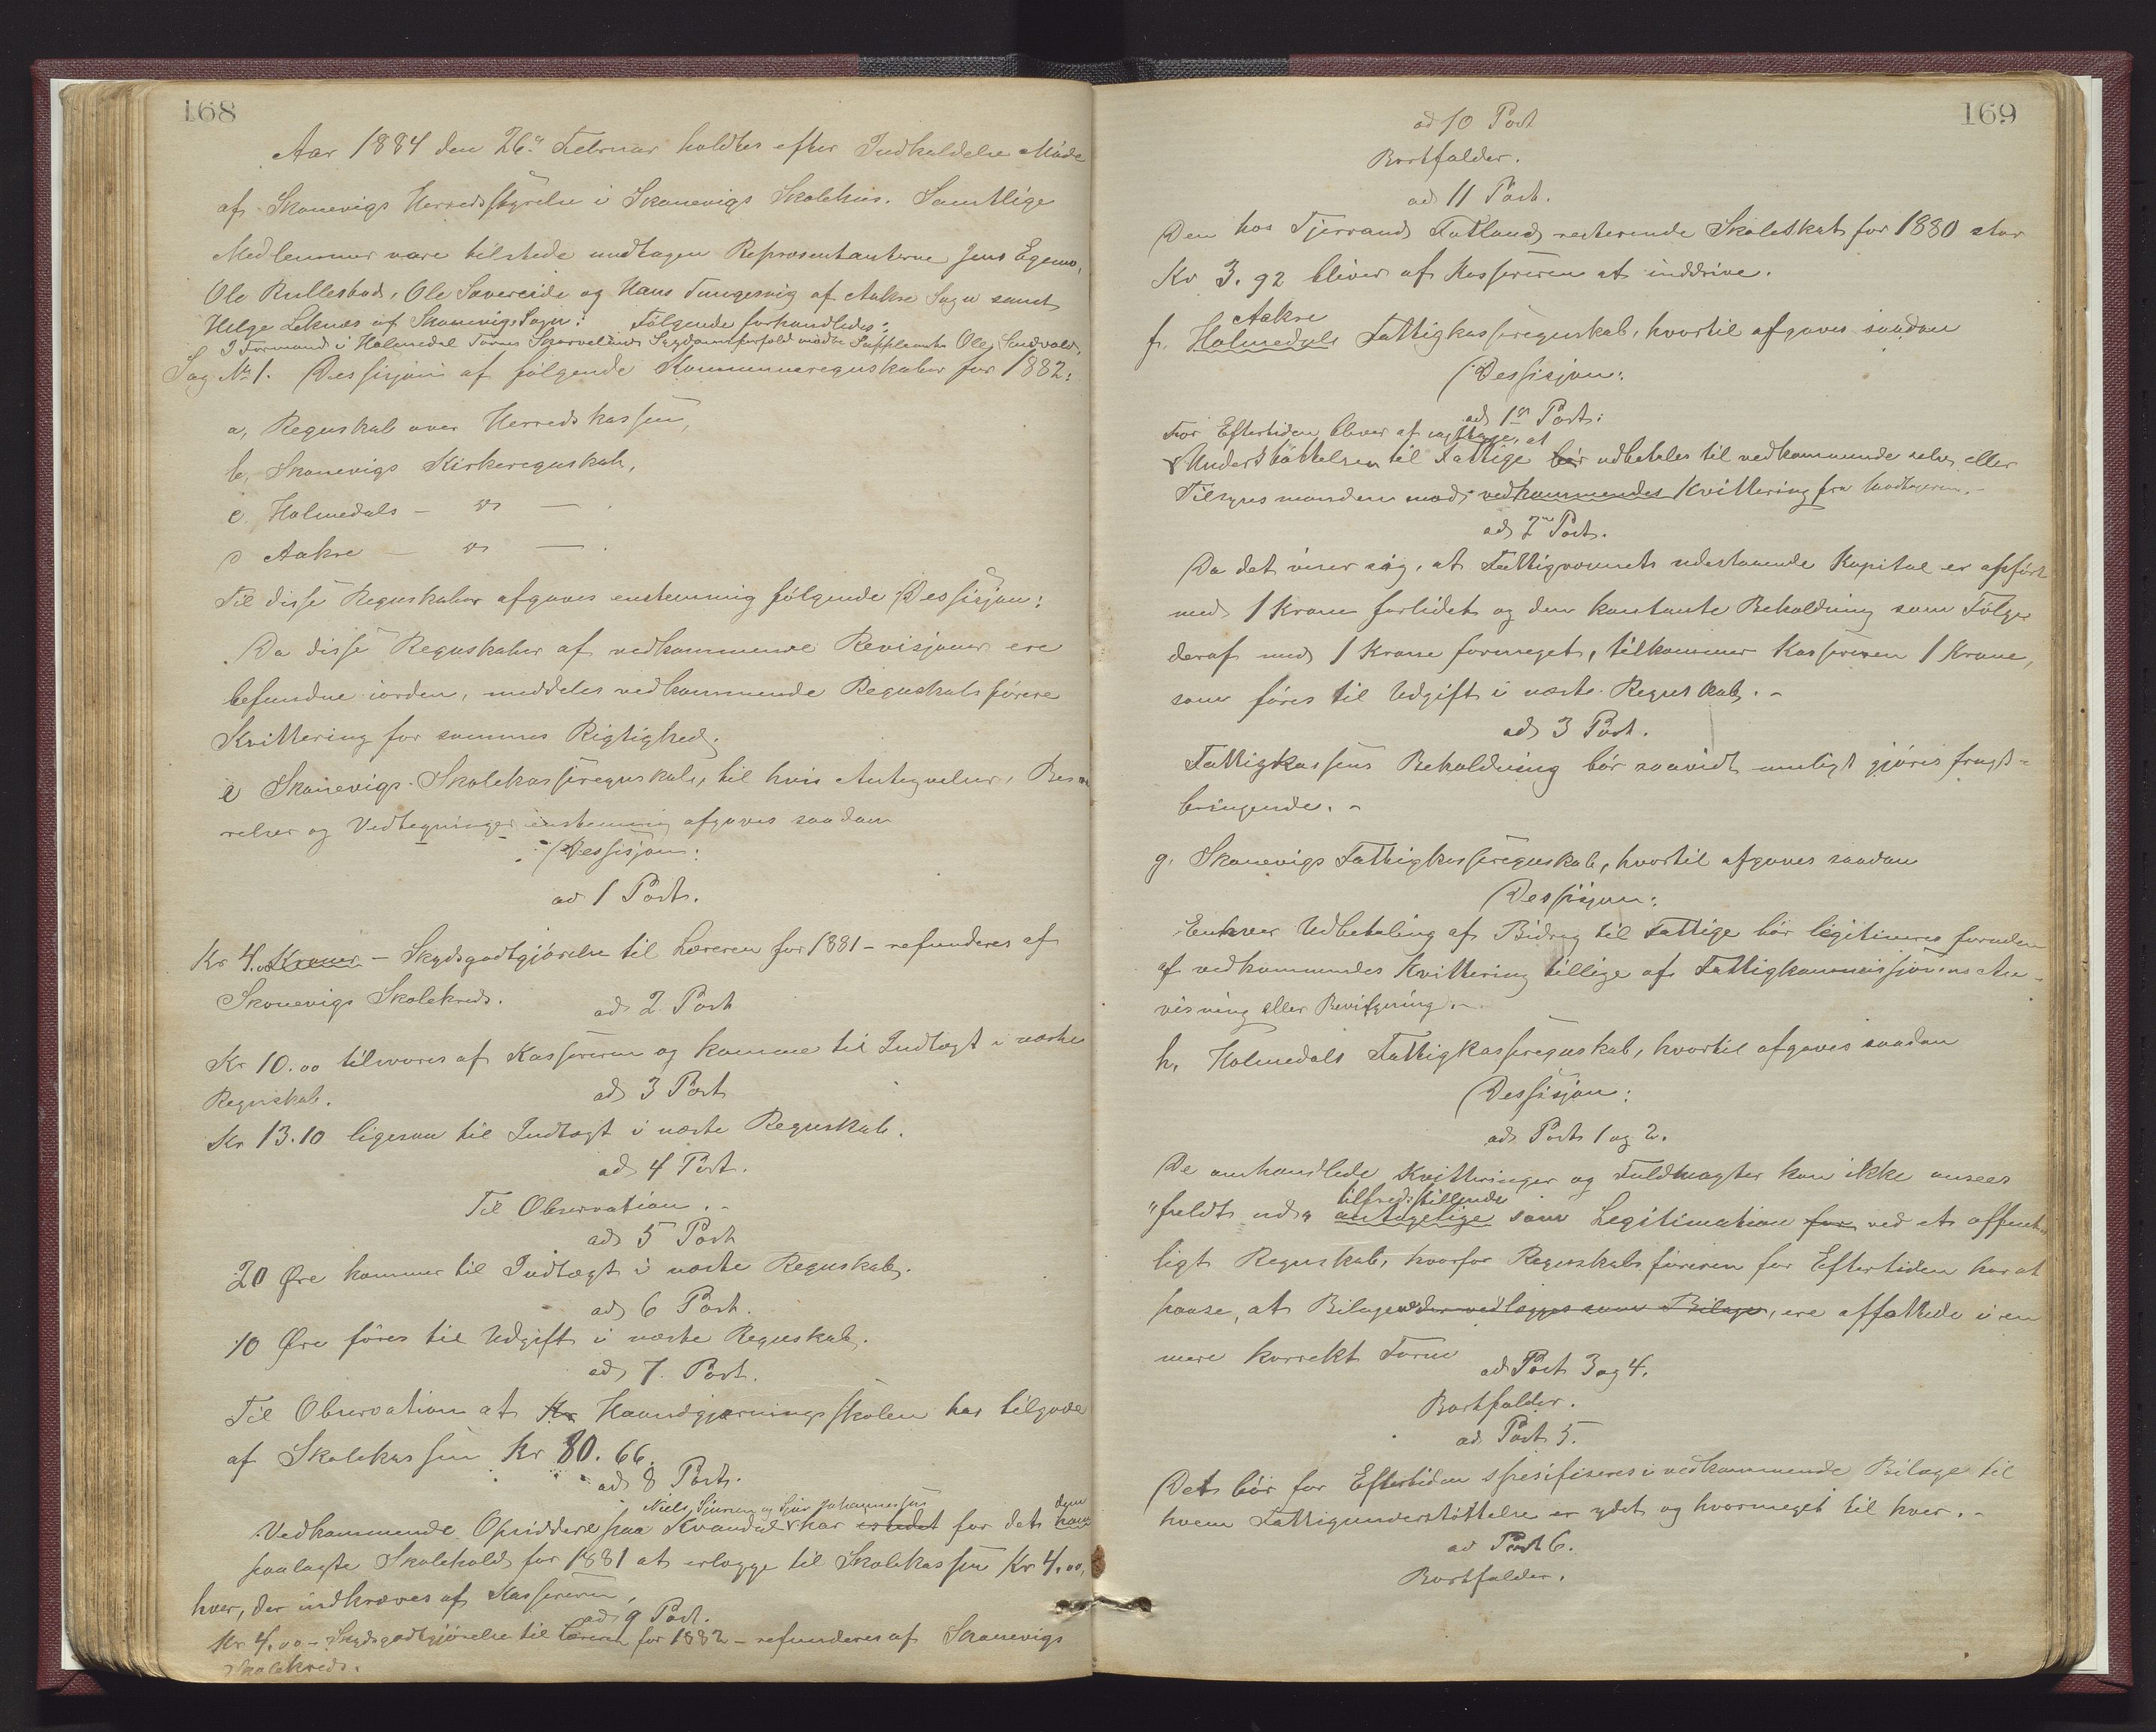 168
Aar 1884 den 26de Februar holdtes efter Indkaldelse Møde
af Skonevigs Herredsstyrelse i Skonevigs Skolehus. Samtlige
Medlemmer vare tilstede undtagen Repræsentanterne Jens Egemo,
Ole Rullestad, Ole Sævereide og Hans Tungesvig af Aakre Sogn samt
Helge Leknæs af Skonevigs Sogn: Følgende forhandledes:
I Formand i Holmedal Tørres Skarvelands Sygdomsforfald mødte Supleanten Ole Sandvold.
Sag № 1. Dessisjon af følgende Kommuneregnskaber for 1882:
a, Regnskab over Herredskassen,
b, Skonevigs Kirkeregnskab,
c. Holmedals — " — .
d Aakre — " — .
Til disse Regnskaber afgaves enstemmig følgende Dessisjon:
Da disse Regnskaber af vedkommende Revisjoner ere
befundne iorden, meddeles vedkommende Regnskabsførere
Kvittering for sammes Rigtighed.
e Skonevigs Skolekasseregnskab, til hvis Antegnelser, Besva
relser og Vedtegninger enstemmig afgaves saadan
Dessisjon:
ad 1 Post.
Kr 4.00 Kroner – Skydsgodtgjørelse til Læreren for 1881 – refunderes af
Skonevigs Skolekreds.
ad 2 Post
Kr 10.00 tilsvares af Kassereren og komme til Indtægt i næste
Regnskab.
ad 3 Post
Kr 13.10 ligesaa til Indtægt i næste Regnskab.
ad 4 Post.
Til Observation. –
ad 5 Post
20 Øre kommer til Indtægt i næste Regnskab.
ad 6 Post.
10 Øre føres til Udgift i næste Regnskab.
ad 7. Post.
Til Observation at Kr Haandgjerningsskolen har tilgode
af Skolekassen Kr 80.66.
ad 8 Post.
Niels Sjursen og Sjur Johannessen
dem
Vedkommende Opsiddere paa Kvandal har istedet for det ham
paalagte Skolehold for 1881 at erlægge til Skolekassen Kr 4.00,
hver, der indkræves af Kassereren,
ad 9 Post.
Kr. 4.00 – Skydsgodtgjørelse til Læreren for 1882 – refunderes af Skonevigs
Skolekreds.
169
ad 10 Post
Bortfalder.
ad 11 Post.
Den hos Tjerrand Fatland resterende Skoleskat for 1880 stor
Kr 3.92 bliver af Kassereren at inddrive.
Aakre
f. Holmedals Fattigkasseregnskab, hvortil afgaves saadan
Dessisjon:
ad 1ste Post:
For Eftertiden bliver at iagttage, at
Understøttelsen til Fattige bør udbetales til vedkommende selv eller
Tilsynsmanden mod vedkommendes Kvittering fra Modtageren. –
ad 2den Post.
Da det viser sig, at Fattigvæsnets udestaaende Kapital er opført
med 1 Krone forlidet og den kontante Beholdning som Følge
deraf med 1 Krone formeget, tilkommer Kassereren 1 Krone,
som føres til Udgift i næste Regnskab. –
ad 3 Post.
Fattigkassens Beholdning bør saavidt muligt gjøres frugt-
bringende. –
g. Skonevigs Fattigkasseregnskab, hvortil afgaves saadan
Dessisjon:
Enhver Udbetaling af Bidrag til Fattige bør legitimeres foruden
af vedkommendes Kvittering tillige af Fattigkommissjonens An-
visning eller Bevilgning. –
h, Holmedals Fattigkasseregnskab, hvortil afgaves saadan
Dessisjon:
ad Post 1 og 2.
De omhandlede Kvitteringer og Fuldmagter kan ikke ansees
tilfredsstillende
"fuldt ud" antagelige som Legitimation for ved et offent-
ligt Regnskab, hvorfor Regnskabsføreren for Eftertiden har at
paase, at Bilagene der vedlægges som Bilage, ere affattede i en
mere korrekt Form
ad Post 3 og 4.
Bortfalder.
ad Post 5.
Det bør for Eftertiden spesifiseres i vedkommende Bilage til
hvem Fattigunderstøttelse er ydet og hvormeget til hver. –
ad Post 6.
Bortfalder.